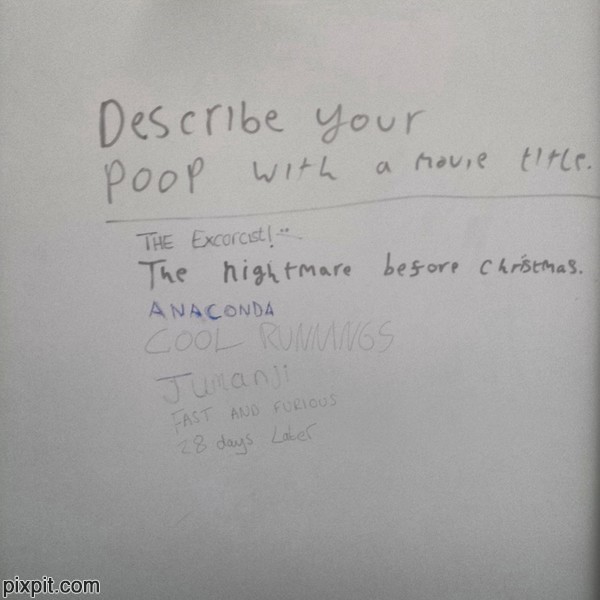 Describe your
Poop with a movie title.
THE Excorcist!
The nightmare before christmas.
ANACONDA
COOL RUNNINGS
Jumanji
FAST AND FURIOUS
28 days Later
pixpit.com